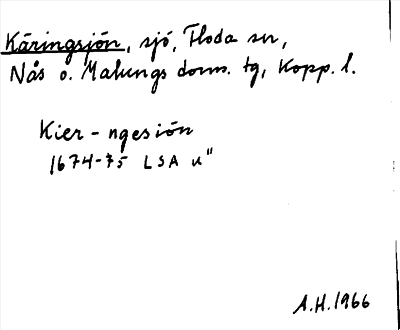 Käringsjön, sjö, Floda sn,
Nås o. Malungs doms. tg, Kopp. l.
Kier-ngesiön
1674-75 LSA u"
A.H. 1966